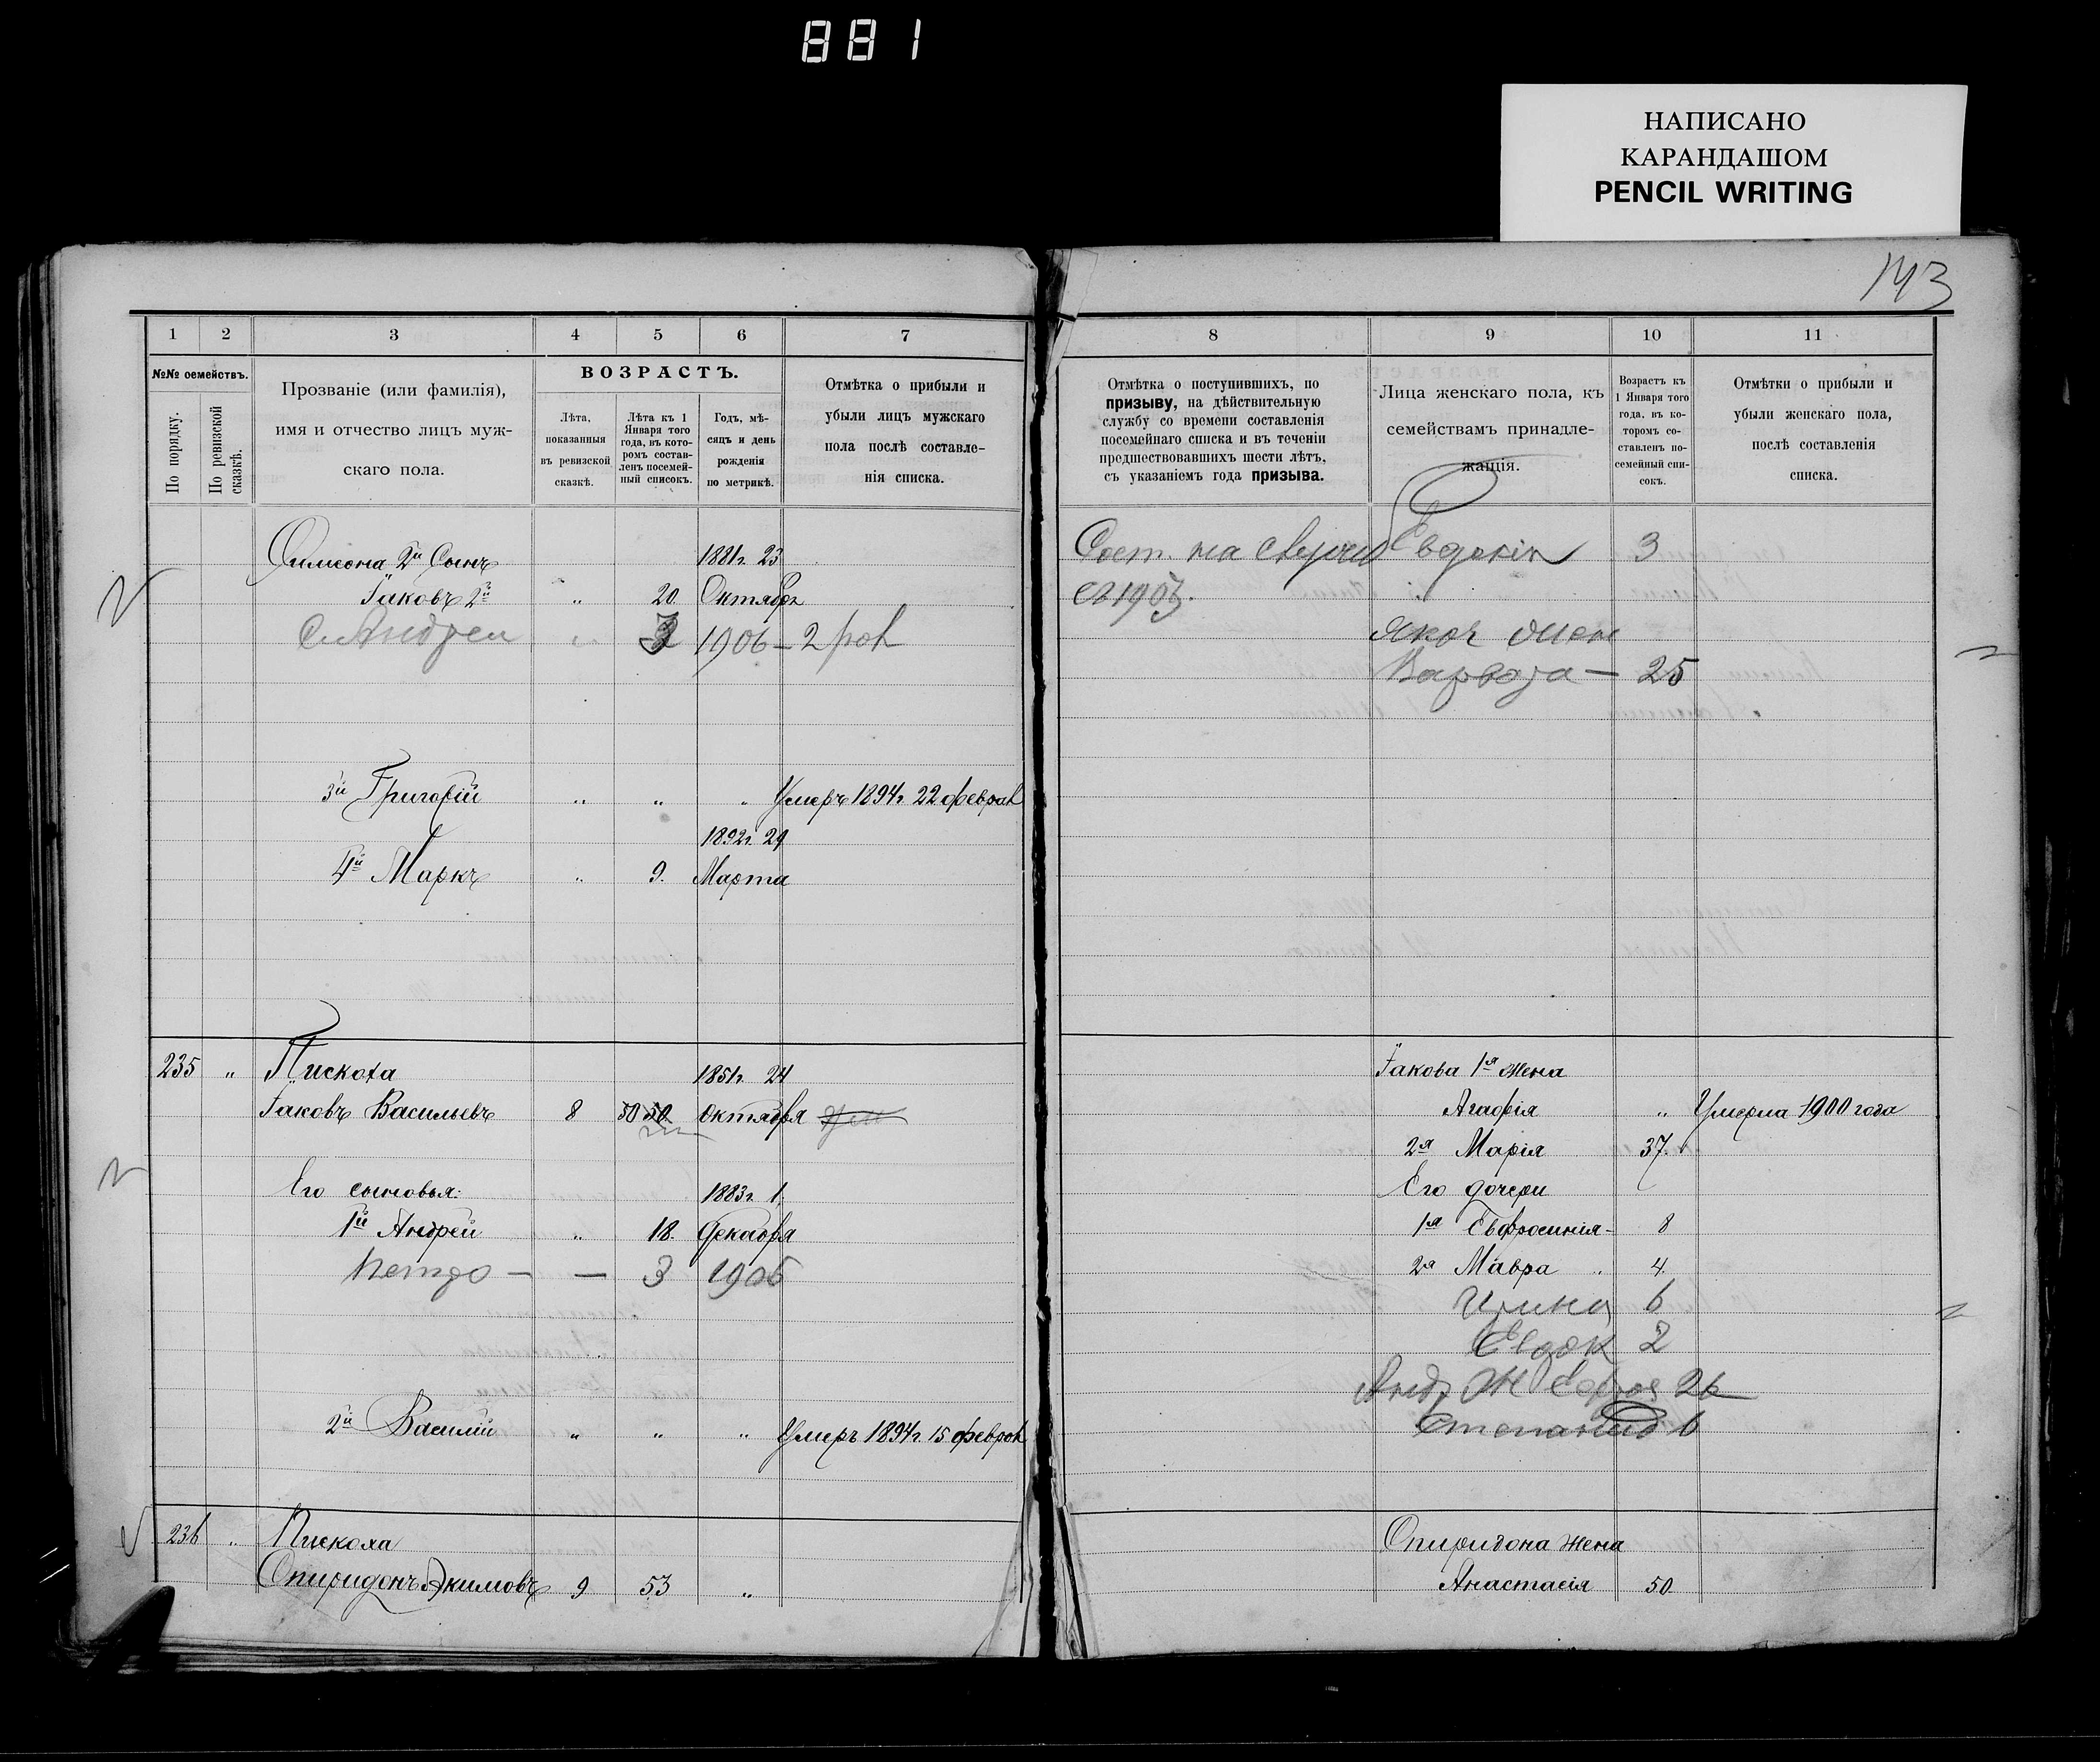 881
НАПИСАНО
КАРАНДАШОМ
PENCIL WRITING
143
1 2 3 4 5 6 7
№№ семействъ.
По порядку.
По ревизской сказкѣ.
Прозваніе (или фамилія),
имя и отчество лицъ муж-
скаго пола.
ВОЗРАСТЪ.
Лѣта,
показанныя
въ ревизской
сказкѣ.
Лѣта къ 1
Января того
года, въ кото-
ромъ состав-
ленъ посемей-
ный списокъ.
Годъ, мѣ-
сяцъ и день
рожденія
по метрикѣ.
Отмѣтка о прибыли и
убыли лицъ мужскаго
пола послѣ составле-
нія списка.
Симеона 2й Сынъ 1881г. 23
Іаковъ 2й " 20 Октября
Андреи 1906 – 2
3й Григорій " " " Умеръ 1894г. 22 феврал
1892г. 29
4й Маркъ " 9. Марта
235 " Пискоха 1851г. 24
Іаковъ Васильевъ 8 50 50 октября
Его сыновья: 1883г. 1
1й Андрей " 18. Декабря
Петро — — 3 1906
2й Василій " " " Умеръ 1894г. 15 феврал
236 " Пискоха
Спиридонъ Якимовъ 9 53 "
8 9 10 11
Отмѣтка о поступившихъ, по
призыву, на дѣйствительную
службу со времени составленія
посемейнаго списка и въ теченіи
предшествовавшихъ шести лѣтъ,
съ указаніемъ года призыва.
Лица женскаго пола, къ
семействамъ принадле-
жащія.
Возрастъ къ
1 Января того
года, въ ко-
торомъ со-
ставленъ по-
семейный спи-
сокъ.
Отмѣтки о прибыли и
убыли женскаго пола,
послѣ составленія
списка.
Сост. на Евдокія 3
с 1903.
Варвара — 25
Іакова 1я жена
Агафія " Умерла 1900 года
2я Марія 37.
Его дочери
1я Евфросинія - 8
2я Мавра 4.
Ирина 6
Евдок 2
Анд. Ж 26
Степанид 6
Спиридона жена
Анастасія 50